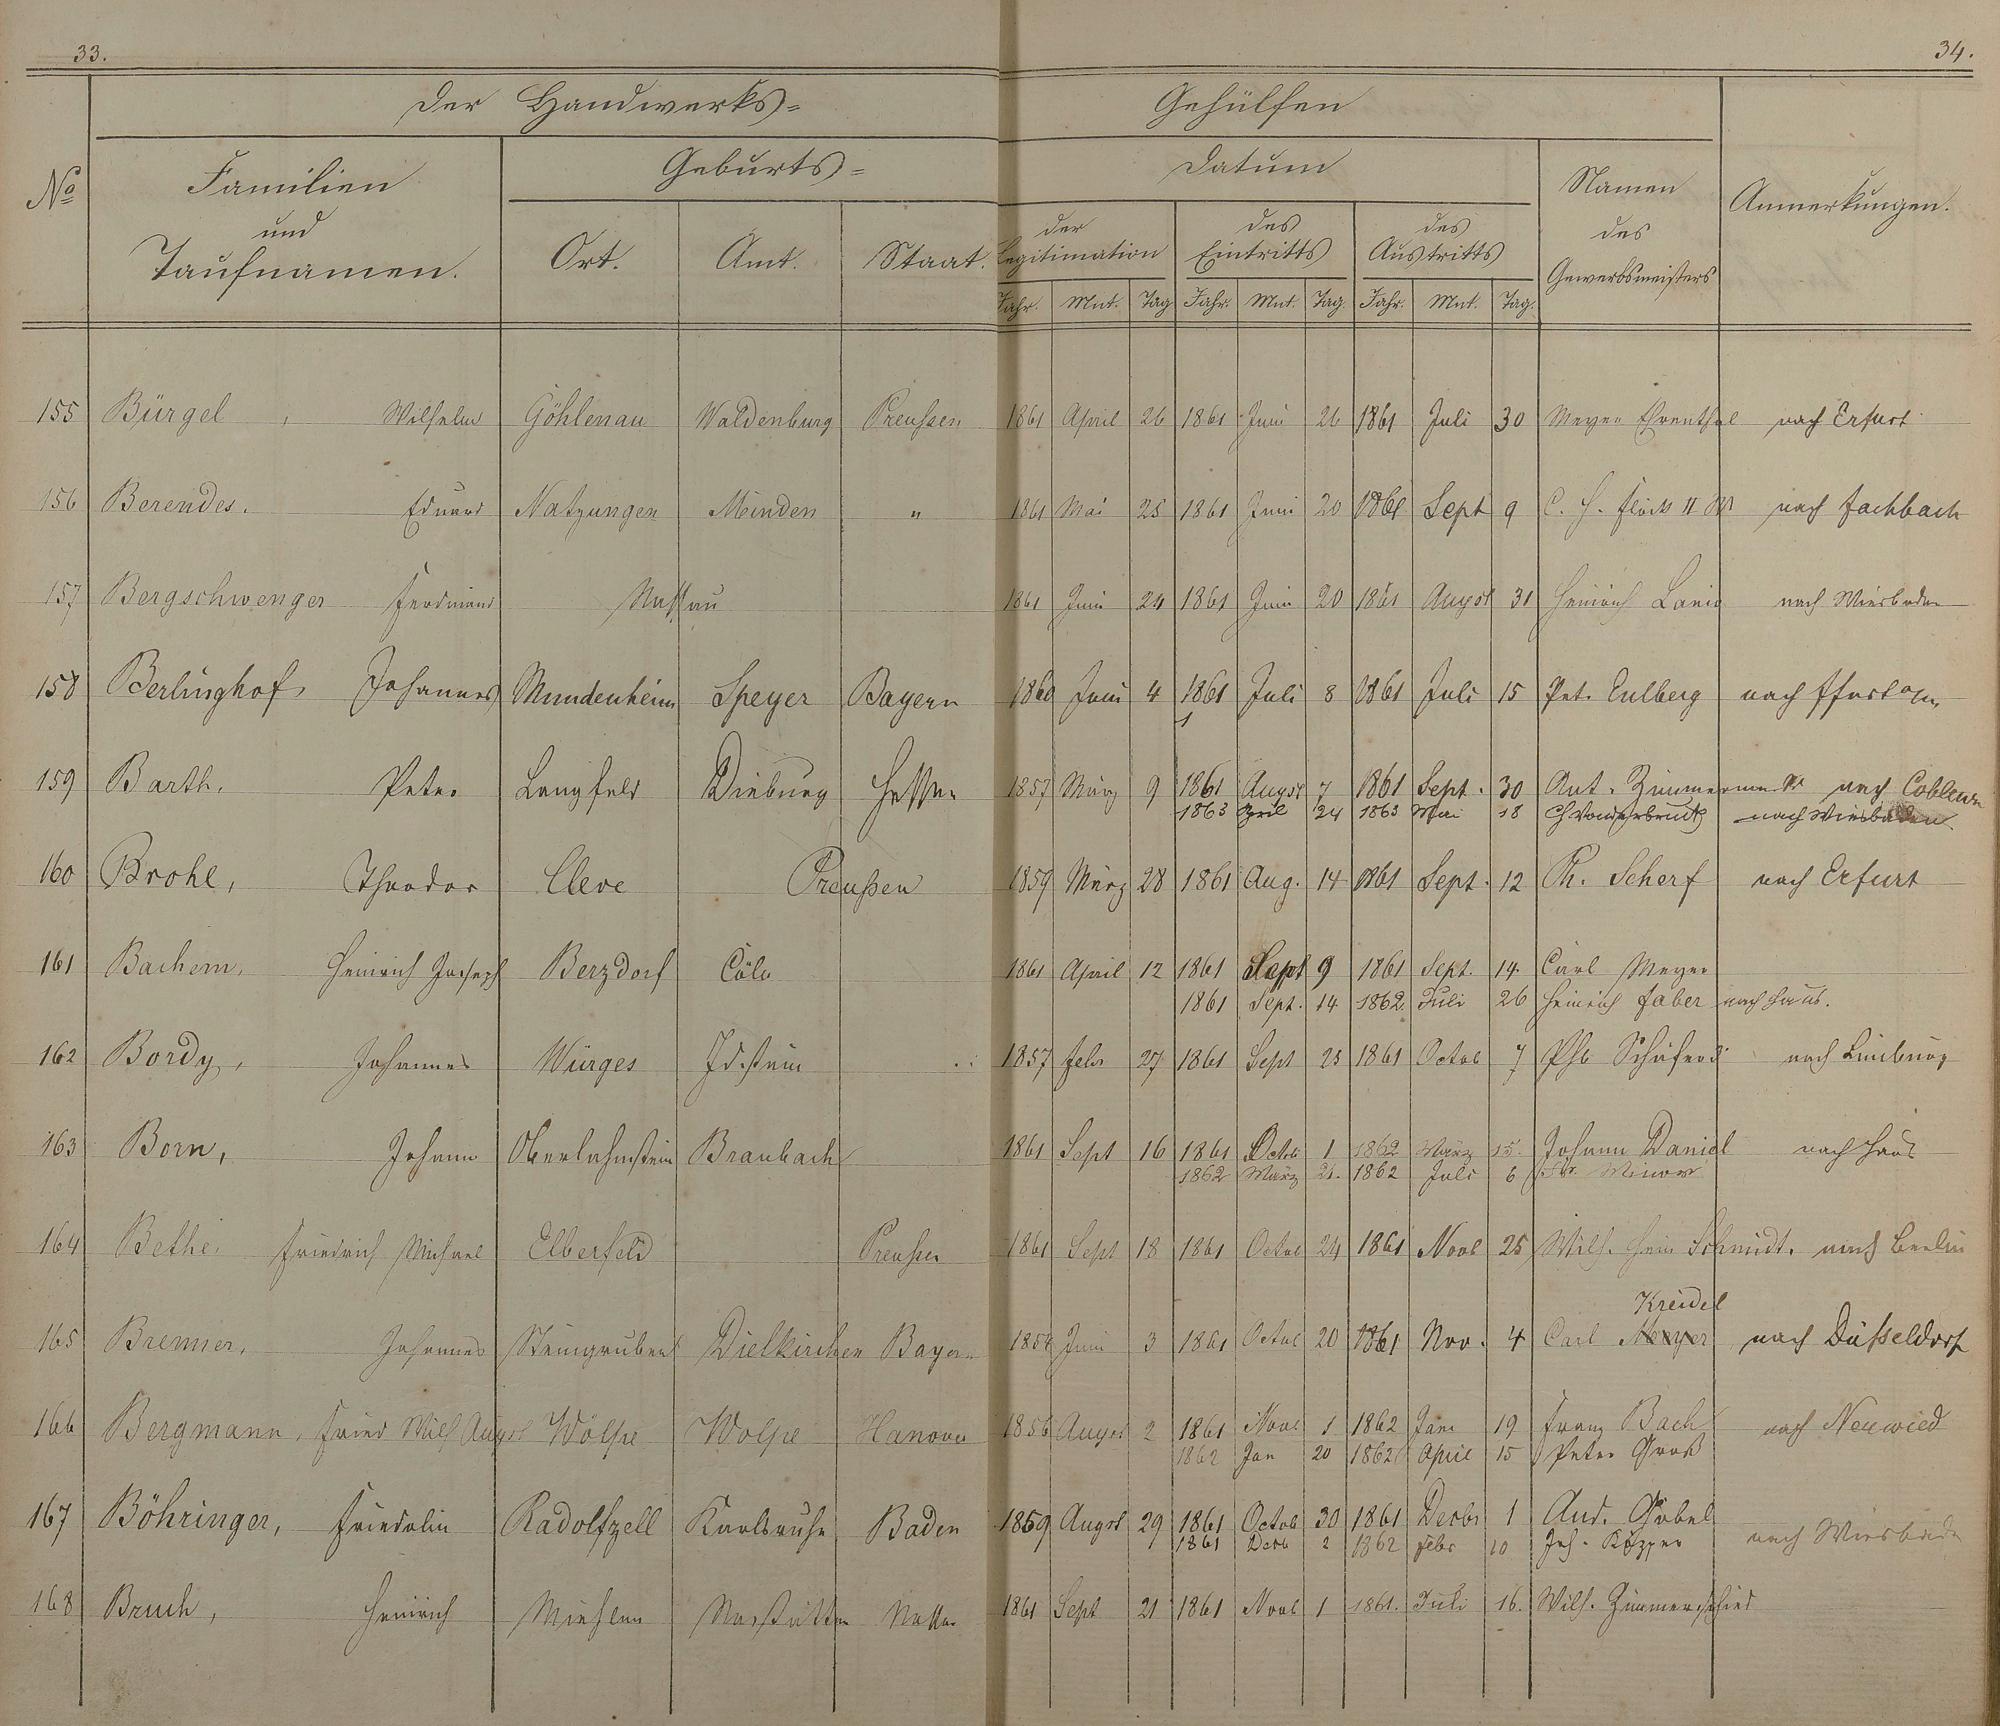 33.
34.
Der Handwerks= Gehülfen
No
Familien
und
Taufnamen.
Geburts=
Ort. Amt. Staat.
Datum
der
Legitimation
des
Eintritts
des
Austritts
Jahr. Mnt. Tag Jahr. Mnt. Tag. Jahr. Mnt. Tag.
Namen
des
Gewerbsmeisters
Anmerkungen.
155 Bürgel, Wilhelm Göhlenau Waldenburg Preußen 1861 April 26 1861 Juni 26 1861 Juli 30 Meyer Ehrenthal nach Erfurt
156 Berendes. Eduard Natzungen Minden " 1861 Mai 25 1861 Juni 20 1861 Sept 9 C. H. Flöck II nach Fachbach
157 Bergschwenger Ferdinand Nassau 1861 Juni 24 1861 Juni 20 1861 August 31 Heinrich Lanio nach Wiesbaden
158 Berlinghof, Johannes Mundenheim Speyer Bayern 1860 Juni 4 1861 Juli 8 1861 Juli 15 Pet. Eulberg nach
159 Barth, Peter Langfeld Dieburg Hessen 1857 März 9 1861 August 7 1861 Sept. 30 Ant. Zimmermann nach Coblenz
1863 April 24 1863 Mai 18 nach Wiesbaden
160 Brohl, Theodor Cleve Preußen 1859 März 28 1861 Aug. 14 1861 Sept. 12 Ph. Scherf nach Erfurt
161 Bachem, Heinrich Joseph Berzdorf Cöln 1861 April 12 1861 Sept 9 1861 Sept. 14. Carl Meyer
1861 Sept. 14 1862. Juli 26 Heinrich Faber nach Haus.
162 Bordy, Johannes Würges Idstein 1857 Febr 27 1861 Sept 25 1861 Octob 7 Phb Schäfer nach Limburg
163 Born, Johann Oberlahnstein Braubach 1861 Sept 16 1861 Octb 1 1862 März 15. Johann Daniel nach Haus
1862 März 21. 1862 Juli 6 Fr. Minor
164 Bethe, Friedrich Michael Elberfeld Preußen 1861 Sept 18 1861 Octob 24 1861 Novb 25 Wilh. Hein Schmidt. nach Berlin
Kreidel
165 Bremer, Johannes Steingruben Dielkirchen Bayern 1858 Juni 3 1861 Octob 20 1861 Nov. 4 Carl Meyer nach Düsseldorf
166 Bergmann, Fried Wilh August Wölpe Wölpe Hanover 1856 August 2 1861 Novb 1 1862 Jan 19 Franz Bach nach Neuwied
1862 Jan 20 1862 April 15 Peter Groß
167 Böhringer, Friedolin Radolfzell Karlsruhe Baden 1859 August 29 1861 Octob 30 1861 Decbr 1 And. Göbel nach Wiesbaden
1861 Decb 2 1862 Febr 10 Joh. Küpper
168 Bruch, Heinrich Miehlen Nastätten Nassau 1861 Sept 21 1861 Novb 1 1861. Juli 16. Wilh. Zimmerschied